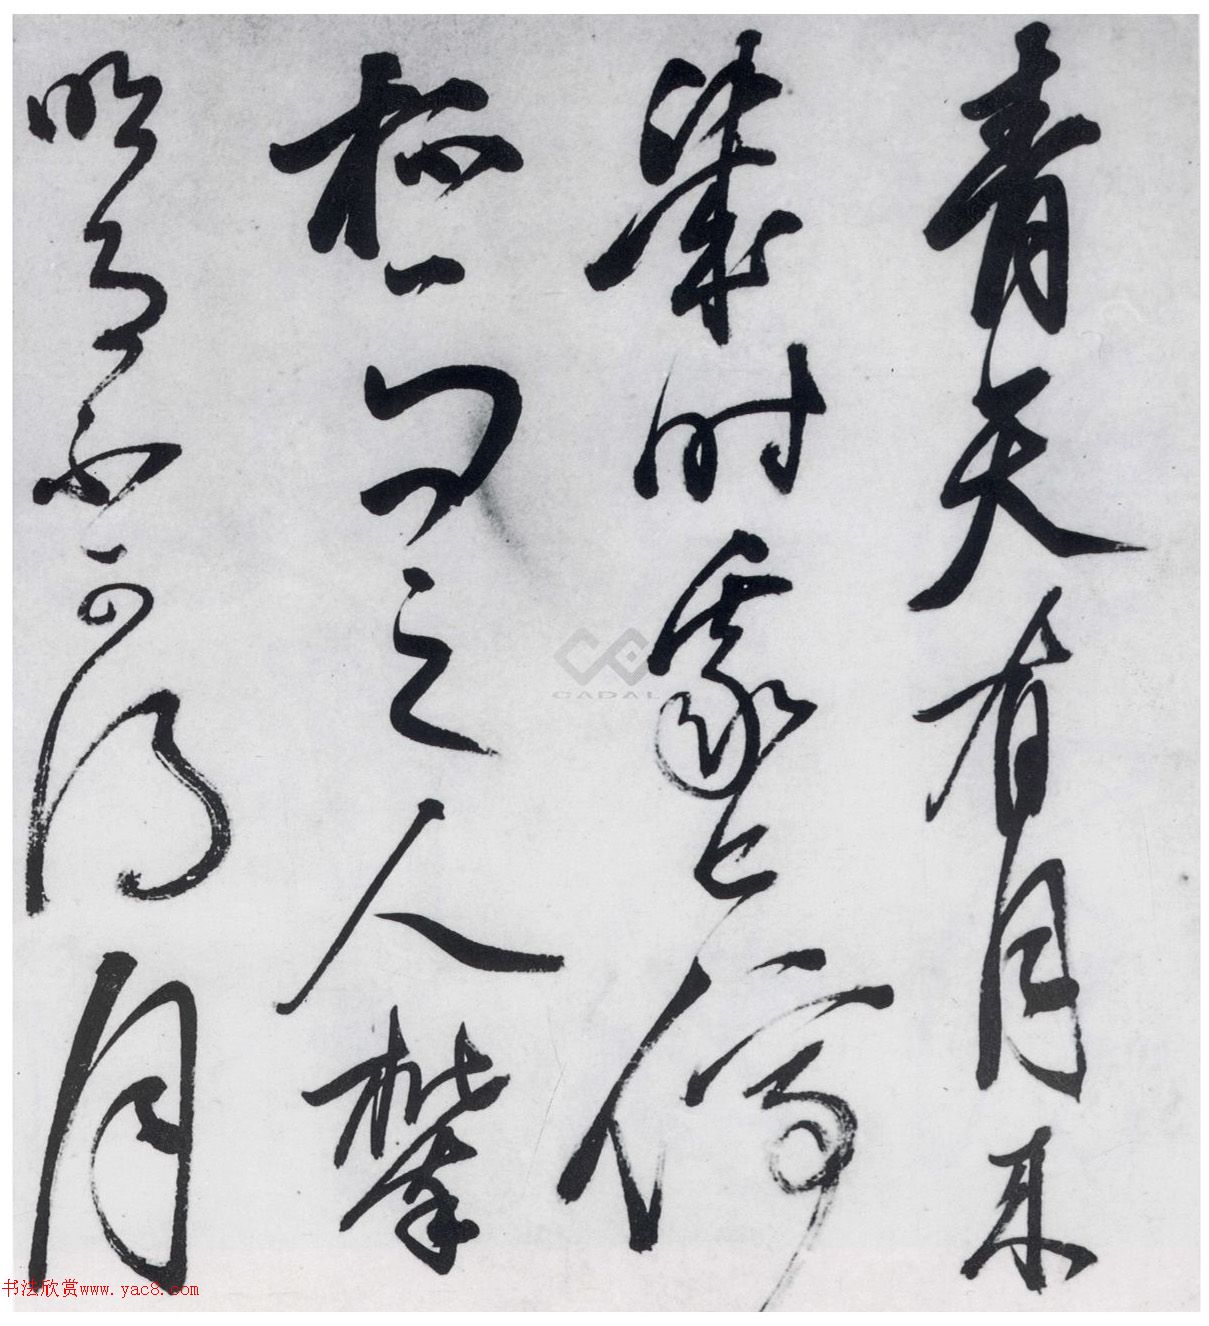 青天有月来
幾时我今停
杯一问之人攀
明月不可得月
CADAL
书法欣赏www.yac8.com